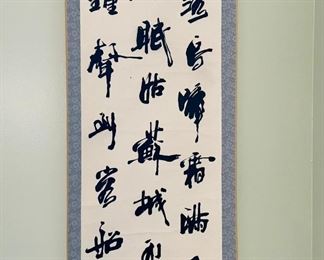 落烏啼霜滿
眠姑蘇城外
鐘聲到客船